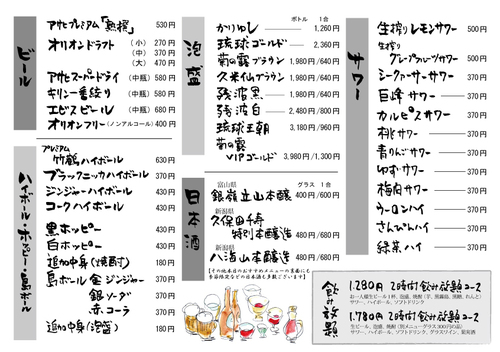 ビール
アサヒプレミアム「熟撰」 530円
オリオンドラフト (小) 270円
(中) 370円
(大) 470円
アサヒスーパードライ (中瓶) 580円
キリン一番絞り (中瓶) 580円
エビスビール (中瓶) 680円
オリオンフリー (ノンアルコール) 400円
ハイボール・ホッピー・島ボール
プレミアム
竹鶴ハイボール 630円
ブラックニッカハイボール 370円
ジンジャーハイボール 430円
コークハイボール 430円
黒ホッピー 430円
白ホッピー 430円
追加中身(焼酎) 180円
島ボール 金 ジンジャー 370円
銀 ソーダ 370円
赤 コーラ 370円
追加中身(泡盛) 180円
泡盛
ボトル 1合
かりゆし 1,260円
琉球ゴールド 2,360円
菊の露ブラウン 1,980円/640円
久米仙ブラウン 1,980円/640円
残波黒 1,980円/640円
残波白 2,480円/800円
琉球王朝 3,180円/960円
菊の露
VIPゴールド 3,980円/1,300円
日本酒
グラス 1合
富山県
銀嶺立山本醸 400円/600円
新潟県
久保田千寿
特別本醸造 480円/680円
新潟県
八海山本醸造 480円/680円
【その他本日のおすすめメニューの裏面にも
季節限定などの日本酒も多数ございます】
サワー
生搾りレモンサワー 500円
生搾り
グレープフルーツサワー 500円
シークァーサーサワー 370円
巨峰サワー 370円
カルピスサワー 370円
桃サワー 370円
青りんごサワー 370円
ゆずサワー 370円
梅肉サワー 370円
ウーロンハイ 370円
さんぴんハイ 370円
緑茶ハイ 370円
飲み放題
1,280円 2時間飲み放題コース
お一人様生ビール1杯、泡盛、焼酎
サワー、ハイボール、ソフトドリンク
1,780円 2時間飲み放題コース
生ビール、泡盛、焼酎
サワー、ハイボール、ソフトドリンク、グラスワイン、果実酒